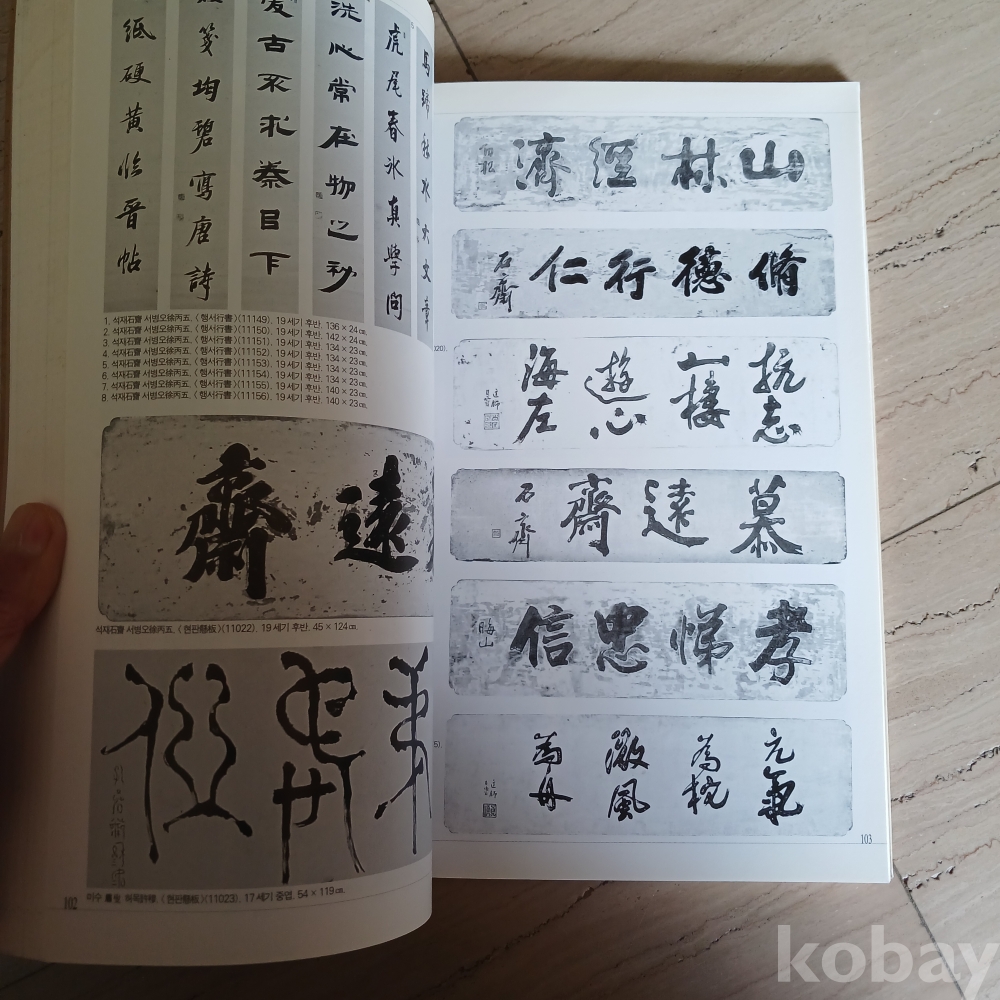 馬蹄秋水大文章
虎尾春氷真學問
洗心常在物之初
愛古不求秦目下
箋均碧寫唐詩
紙硬黃臨晉帖
1. 석재石齋 서병오徐丙五. 《행서行書》(11149). 19세기 후반. 136×24㎝.
2. 석재石齋 서병오徐丙五. 《행서行書》(11150). 19세기 후반. 142×24㎝.
3. 석재石齋 서병오徐丙五. 《행서行書》(11151). 19세기 후반. 134×23㎝.
4. 석재石齋 서병오徐丙五. 《행서行書》(11152). 19세기 후반. 134×23㎝.
5. 석재石齋 서병오徐丙五. 《행서行書》(11153). 19세기 후반. 134×23㎝.
6. 석재石齋 서병오徐丙五. 《행서行書》(11154). 19세기 후반. 134×23㎝.
7. 석재石齋 서병오徐丙五. 《행서行書》(11155). 19세기 후반. 140×23㎝.
8. 석재石齋 서병오徐丙五. 《행서行書》(11156). 19세기 후반. 140×23㎝.
遠齋
석재石齋 서병오徐丙五. 《현판懸板》(11022). 19세기 후반. 45×124㎝.
미수 眉叟 허목許穆. 《현판懸板》(11023). 17세기 중엽. 54×119㎝.
102
山林經濟
脩德行仁 石齋
020).
抗志
山棲
遊心
海左
慕遠齋 石齋
孝悌忠信 晦山
5).
元氣
為枕
微風
為舟
103
kobay